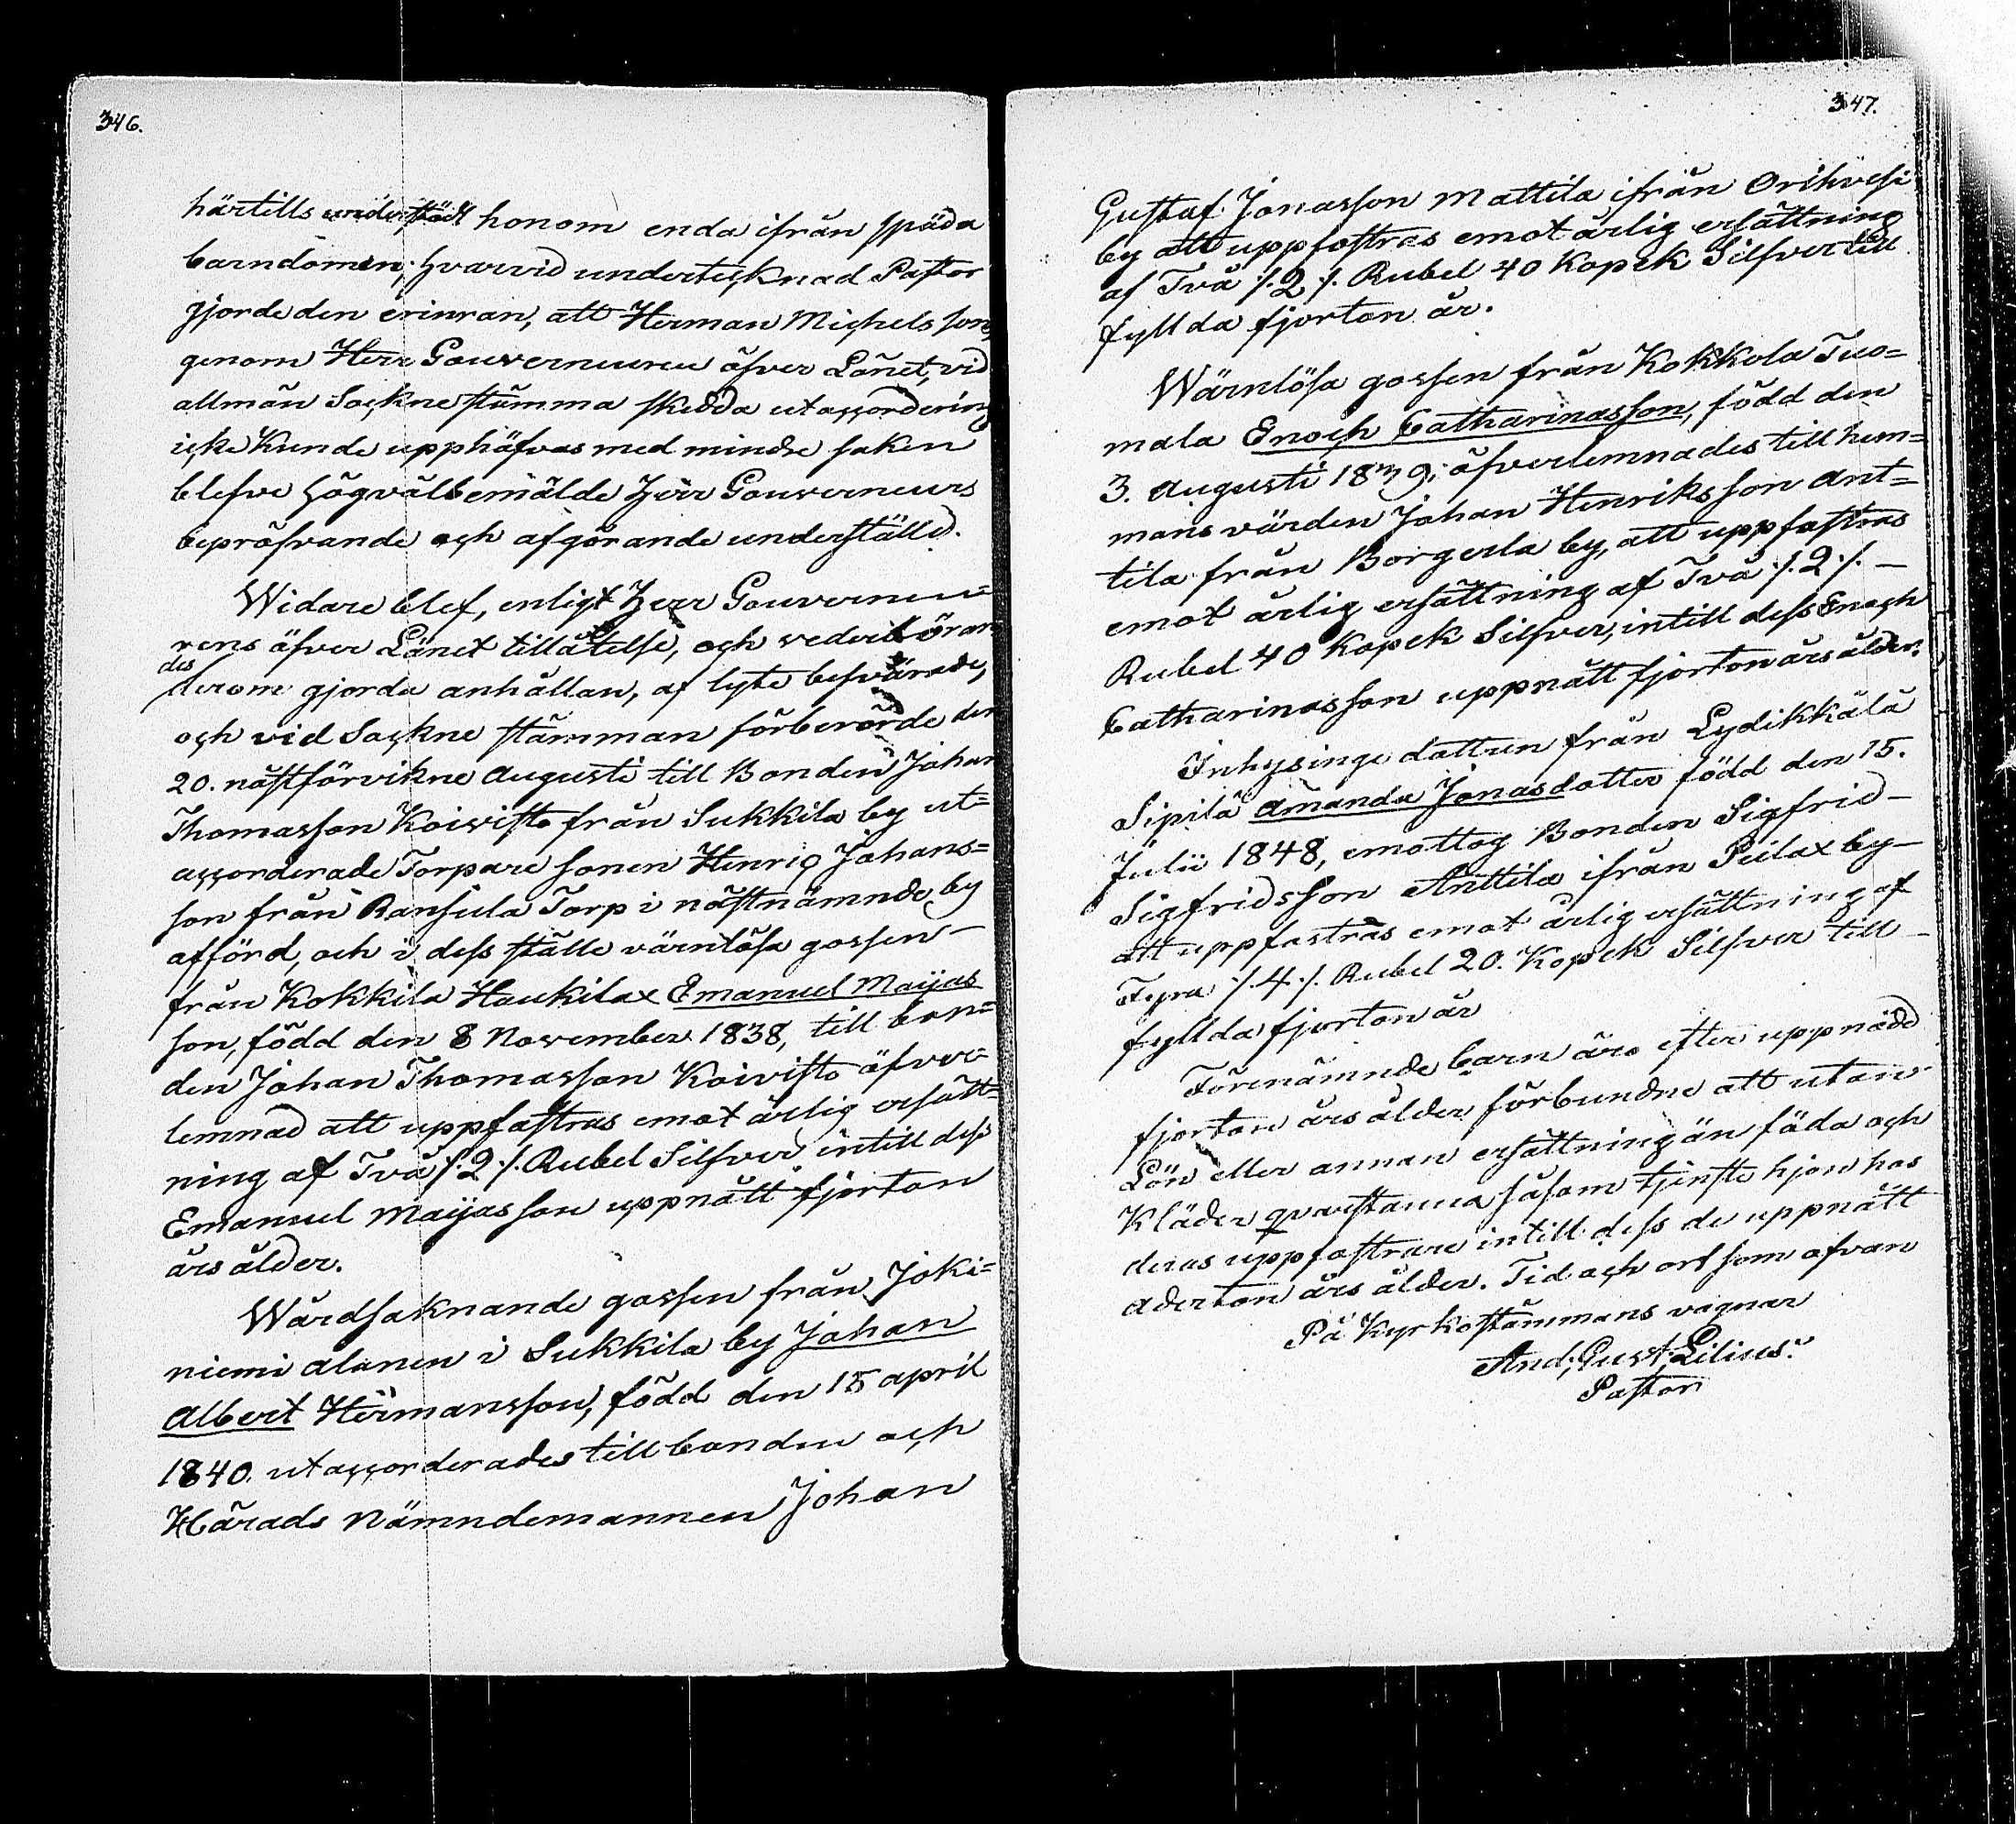 346.
härtills understödt honom enda ifrån späda
barndomen; hvarvid undertecknad Pastor
gjorde den erinran, att Herman Michelsson,
genom Herr Gouverneuren öfver Länet, vid
allmän Sockne stämma skedda utaccordering
icke Kunde upphäfvas med mindre saken
blefve högvälbemälde Herr Gouverneurs
bepröfvande och afgörande underställd.
Widare blef, enligt Herr Gouverneu=
rens öfver Länet tillåtelse, och vederböran
des
derom gjorda anhållan, af lyte besvärade,
och vid Sockne stämman förberörde den
20. nästförvikne Augusti till Bonden Johan
Thomasson Koivisto från Sukkila by ut=
accorderade Torpare sonen Henric Johans=
son från Ransula Torp i nästnämnde by
afförd, och i dess ställe värnlösa gossen -
från Kokkila Haukilax Emanuel Maijas
son, född den 8 November 1838, till bon=
den Johan Thomasson Koivisto öfver=
lemnad att uppfostras emot årlig ersätt=
ning af Två /: 2 :/ Rubel Silfver intill dess
Emanuel Maijasson uppnått fjorton
års ålder.
Wårdsaknande gossen från Joki=
niemi alanen i Sukkila by Johan
Albert Hermansson, född den 15 april
1840. utaccorderades till bonden och
Härads Nämndemannen Johan
347.
Gustaf Jonasson Mattila ifrån Orihvesi
by att uppfostras emot årlig ersättning
af Två /: 2 :/ Rubel 40 Kopek Silfver till
fyllda fjorton år.
Wärnlösa gossen från Kokkola Tuo=
mala Enoch Catharinasson, född den
3. Augusti 1839; öfverlemnades till hem=
mans värden Johan Henriksson Ant=
tila från Borgerla by, att uppfostras
emot årlig ersättning af Två /: 2 :/ -
Rubel 40 Kopek Silfver, intill dess Enoch
Catharinasson uppnått fjorton års ålder.
Inhysinge dottren från Lydikkälä
Sipilä Amanda Jonasdotter född den 15.
Julii 1848, emottog Bonden Sigfrid -
Sigfridsson Anttila ifrån Peilax by -
att uppfostras emot årlig ersättning af
Fyra /: 4 :/ Rubel 20. Kopek Silfver till -
fyllda fjorton år
Förenämnde barn äro efter uppnådd
fjorton års ålder förbundne att utan
Lön eller annan ersättning än föda och
Kläder qvarstanna såsom tjenste hjon hos
deras uppfostrare intill dess de uppnått
aderton års ålder. Tid och ort som ofvan
På Kyrkostämmans vägnar
And: Gust: Lilius.
Pastor